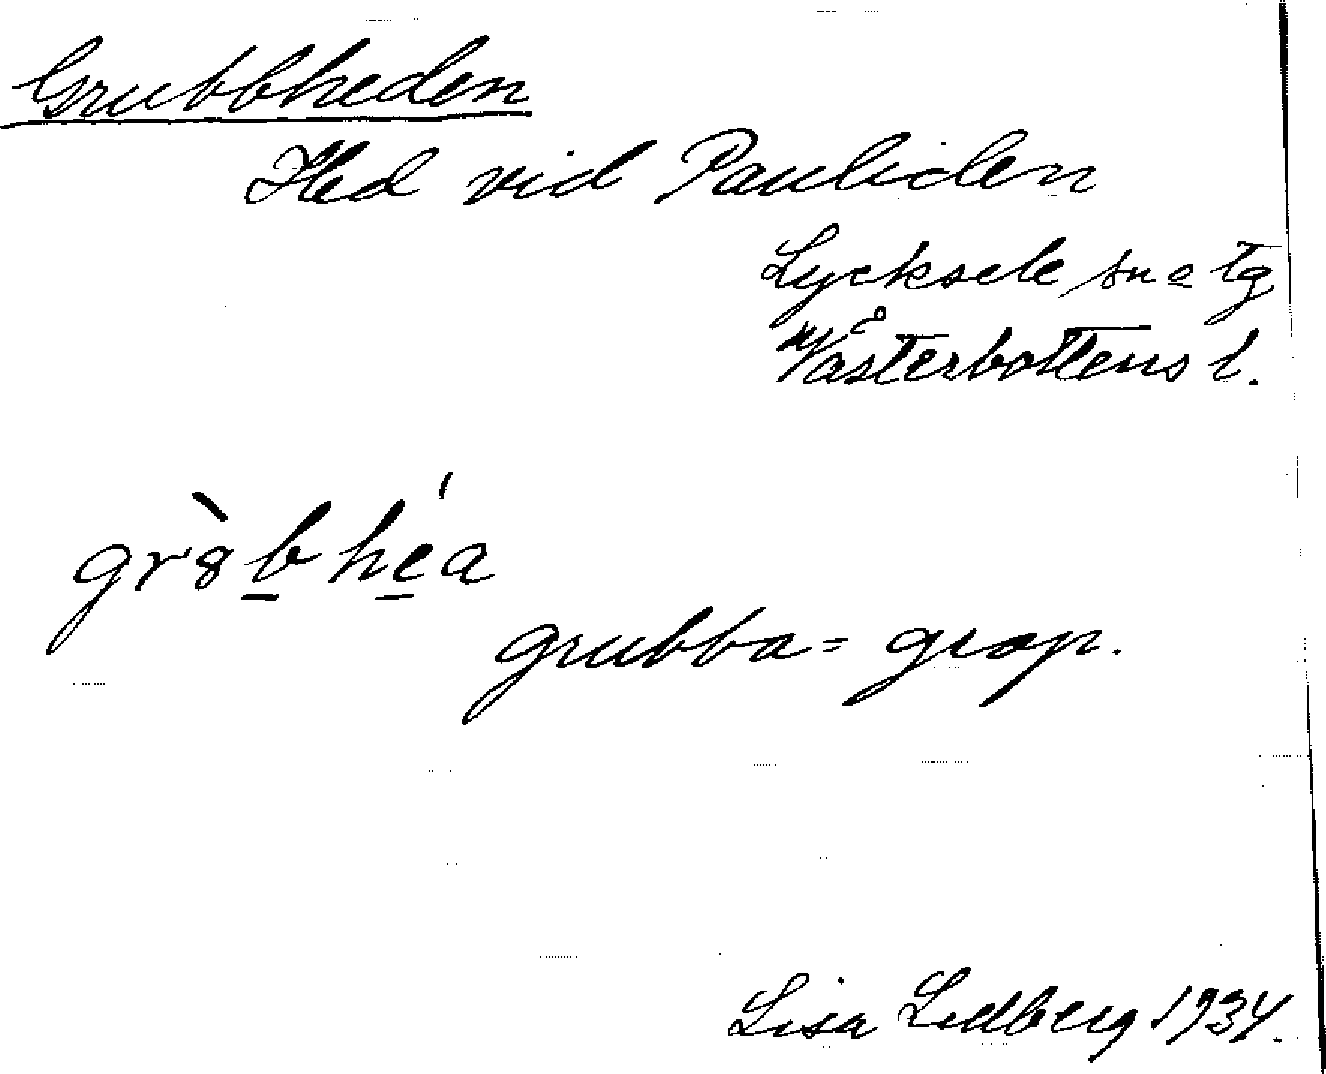 Grubbheden
Hed vid Pauliden
Lycksele sn o tg
Västerbottens l.
gr8̀b̲ hé̲a
grubba = grop.
Lisa Lidberg 1934.